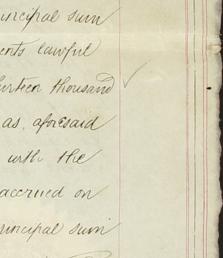 ncipal sum
ents lawful
thousand
as aforesaid
with the
accrued on
rincipal sum